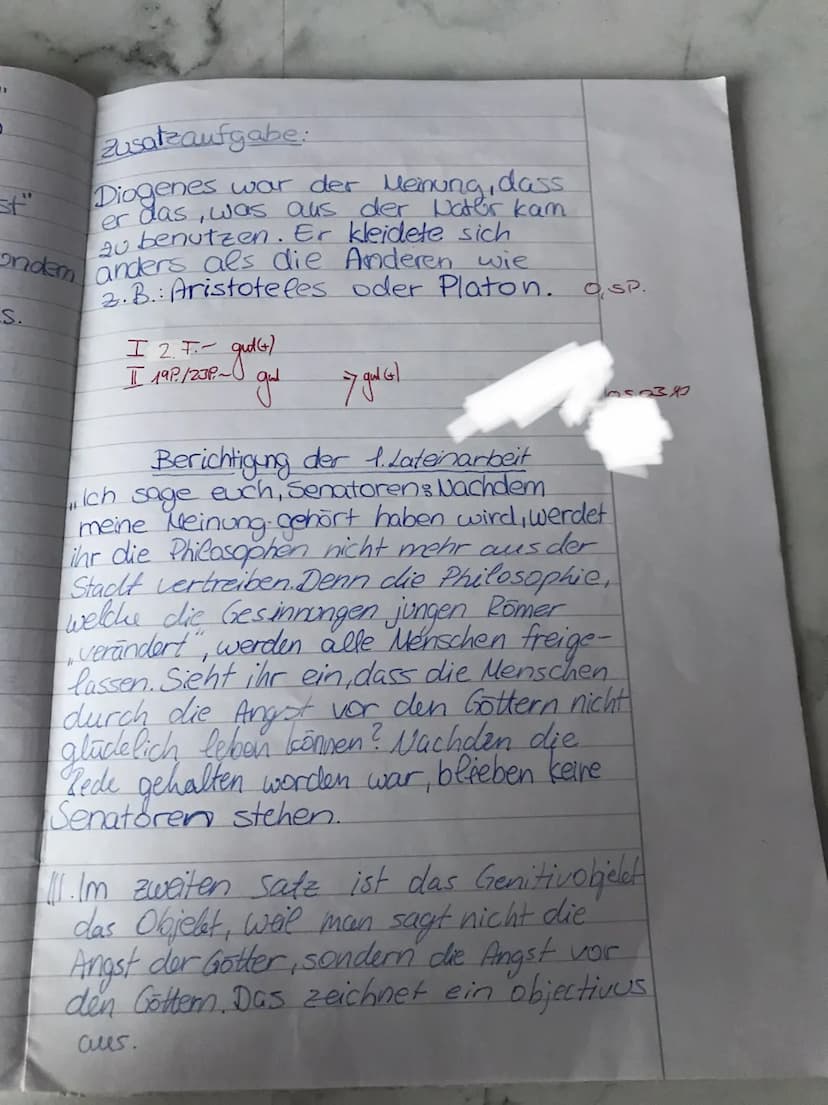 "
st"
ondern
s.
Zusatzaufgabe:
Diogenes war der Meinung, dass
er das, was aus der Natur kam
zu benutzen. Er kleidete sich
anders als die Anderen wie
z.B.: Aristoteles oder Platon.
0,5P.
I 2. F. - gut(+)
II 19P./23P. ~ gut → gut(+)
Berichtigung der 1. Lateinarbeit
„Ich sage euch, Senatoren: Nachdem
meine Meinung gehört haben wird, werdet
ihr die Philosophen nicht mehr aus der
Stadt vertreiben. Denn die Philosophie,
welche die Gesinnungen jungen Römer
„verändert", werden alle Menschen freige-
lassen. Sieht ihr ein, dass die Menschen
durch die Angst vor den Göttern nicht
glücklich leben können? Nachdem die
Rede gehalten worden war, blieben keine
Senatoren stehen.
III. Im zweiten Satz ist das Genitivobjekt
das Objekt, weil man sagt nicht die
Angst der Götter, sondern die Angst vor
den Göttern. Das zeichnet ein objectivus
aus.